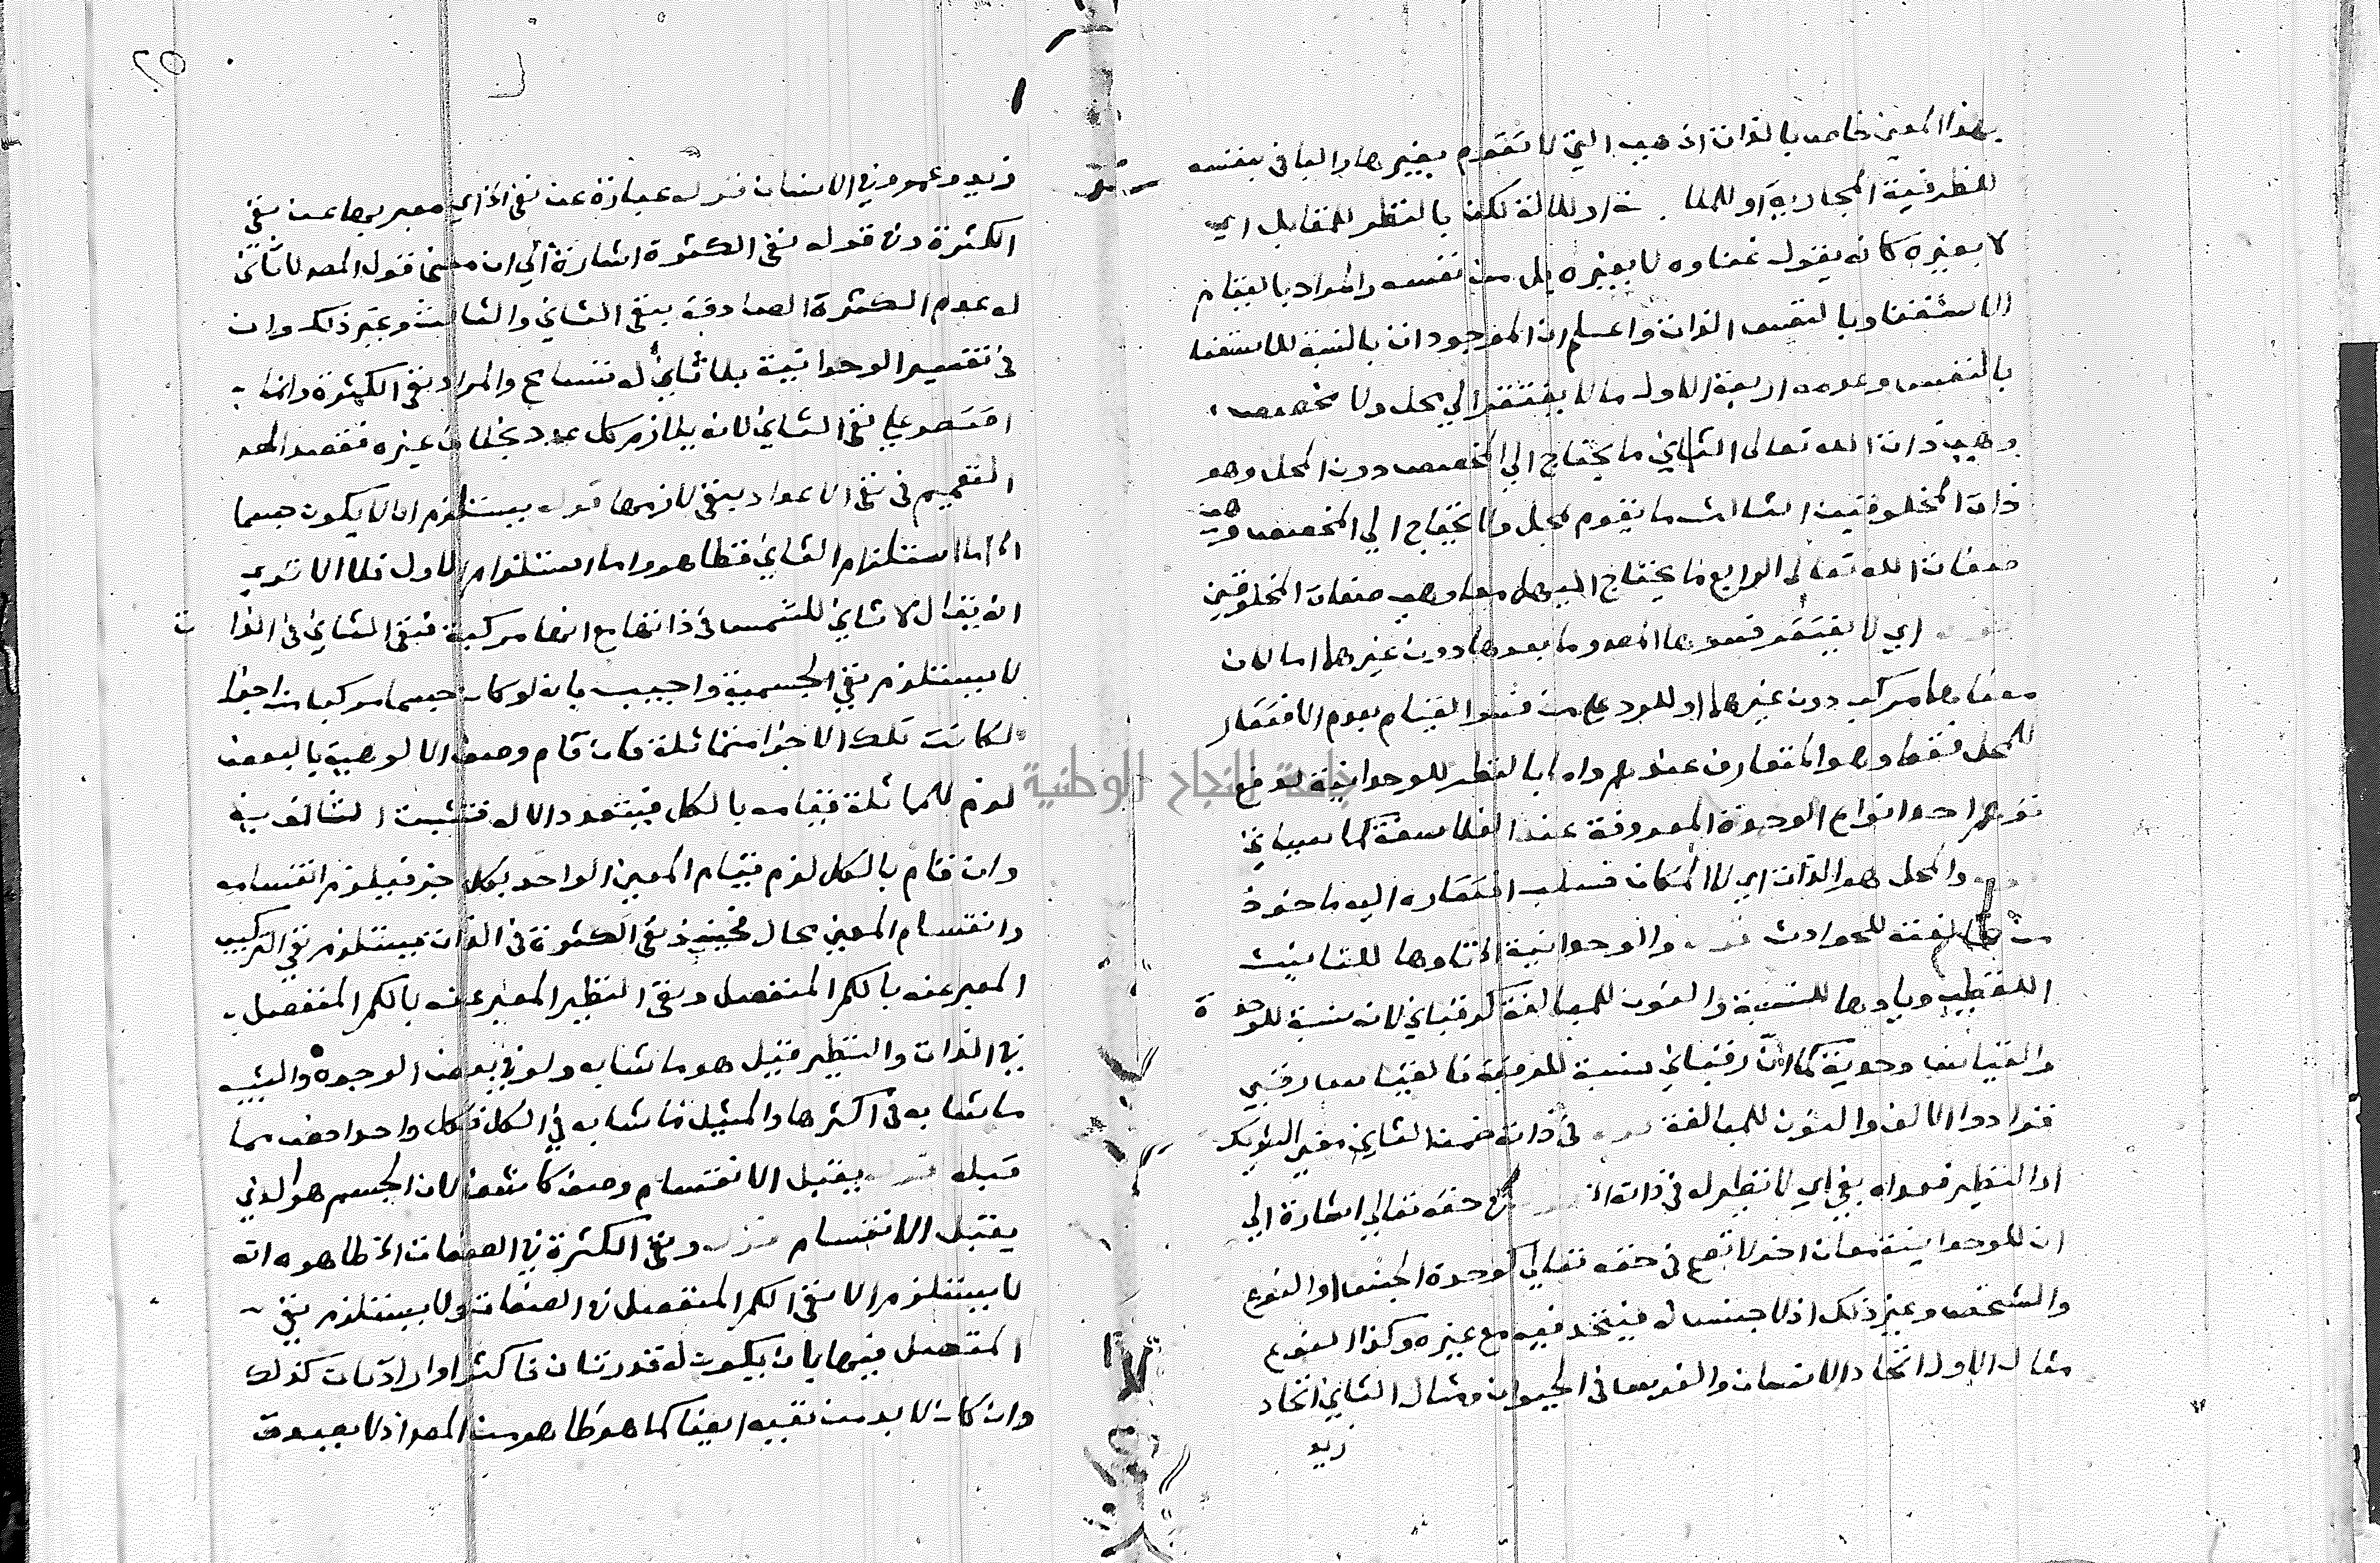 بهذا المعنى خاص بالذات اذ هي التي لا تقوم بغيرها والبا في بنفسه
للظرفية المجازية او للملا بسة او للالة لكن بالنظر للمقابل اي
لا بغيره كانه يقول غناوه لا بغيره بل من نفسه والمراد بالقيام
الاستغنا وبالنفس الذات واعلم ان الموجودات بالنسبة للاستغنا
بالنفس وعدمه اربعة الاول ما لا يفتقر الي محل ولا مخصص
وهي ذات الله تعالى الثاني ما يحتاج الي المخصص دون المحل وهو
ذات المخلوقين الثالث ما يقوم بمحل ولا يحتاج الي المخصص وهي
صفات الله تعالى الرابع ما يحتاج اليهما معا وهي صفات المخلوقين
قوله اي لا يفتقر فسرها المصه وما بعدها دون غيرهما اما لان
معناهما مركب دون غيرهما او للرد على من فسر القيام بعدم الافتقار
للمحل فقط وهو المتعارف عندهم واما بالنظر للوحدانية لدفع
توهم احد انواع الوحدة المعروفة عند الفلاسفة كما سياتي
والمحل هو الذات اي لا المكان فسلب افتقاره اليه ماخوذ
من مخالفته للحوادث قوله والوحدانية الخ تاوها للتانيث
اللفظي وياوها للنسبة والنون للمبالغة كرقباني لانه نسبة للوحدة
والقياس وحدية كما ان رقباني نسبة للرقبة فالقياس رقبي
فزادوا الالف والنون للمبالغة قوله في ذاته ضمن الثاني معني الشريك
او النظير فعداه بفي اي لا نظير له في ذاته الخ قوله في حقه تعالي اشارة الي
ان للوحدانية معان اخر لا تصح في حقه تعالي كوحدة الجنس او النوع
والشخص وغير ذلك اذ لا جنس له فيتحد فيه مع غيره وكذا النوع
مثال الاول اتحاد الانسان والفرس في الحيوان ومثال الثاني اتحاد
زيد
٢٥
زيد وعمرو في الانسان قوله عبارة عن نفي الخ اي معبر بها عن نفي
الكثرة وفي قوله نفي الكثرة اشارة الي ان معنى قول المصه لا ثاني
له عدم الكثرة الصادقة بنفي الثاني والثالث وغير ذلك وان
في تفسير الوحدانية بلا ثاني له تسامح والمراد نفي الكثرة وانما
اقتصر علي نفي الثاني لانه يلازم كل عدد بخلاف غيره فقصد المصه
التعميم في نفي الاعداد بنفي لازمها قوله يستلزم ان لا يكون جسما
الخ اما استلزام الثاني فظاهر واما استلزام الاول فلا الا ترى
انه يقال لا ثاني للشمس في ذاتها مع انها مركبة فنفي الثاني في الذات
لا يستلزم نفي الجسمية واجيب بانه لو كان جسما مركبا من اجزا
لكانت تلك الاجزا متماثلة فان قام وصف الالوهية بالبعض
لزم للمماثلة قيامه بالكل فيتعدد الاله فتثبت الثانوية
وان قام بالكل لزم قيام المعنى الواحد بكل جز فيلزم انقسامه
وانقسام المعنى محال فحينئذ نفي الكثرة في الذات يستلزم نفي التركيب
المعبر عنه بالكم المتصل ونفي النظير المعبر عنه بالكم المنفصل
في الذات والنظير قيل هو ما شابه ولو في بعض الوجوه والشبيه
ما شابه في اكثرها والمثيل ما شابه في الكل فكل واحد اخص مما
قبله قوله يقبل الانقسام وصف كاشف لان الجسم هو الذي
يقبل الانقسام قوله ونفي الكثرة في الصفات الخ ظاهره انه
لا يستلزم الا نفي الكم المنفصل في الصفات ولا يستلزم نفي
المتصل فيها بان يكون له قدرتان فاكثر او ارادتان كذلك
وان كان لا بد من نفيه ايضا كما هو ظاهر من المصه اذ لا يصدق
جامعة النجاح الوطنية